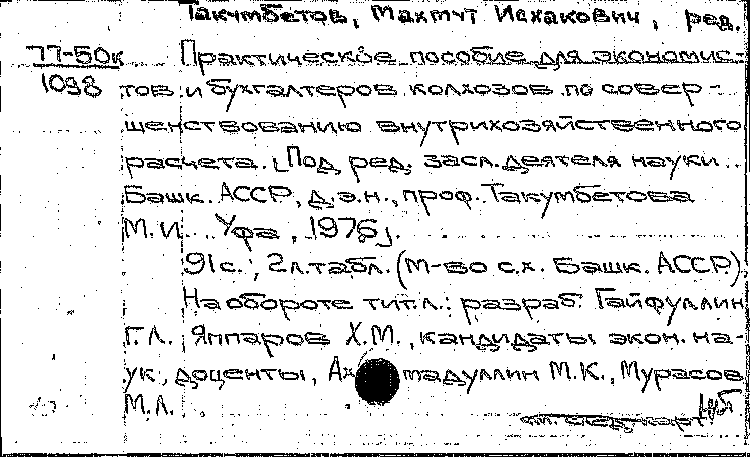 Такумбетов, Махмут Исхакович, ред.
77-50к Практическое пособие для экономис-
1098 тов и бухгалтеров колхозов по совер-
шенствованию внутрихозяйственного
расчета. [Под ред. засл. деятеля науки
Башк. АССР, д.э.н., проф. Такумбетова
М.И. Уфа, 1976].
91 с.; 2 л. табл. (М-во с.х. Башк. АССР).
На обороте тит. л.: разраб. Гайфуллин
Г.Л., Яппаров Х.М., кандидаты экон. на-
ук, доценты, Ах мадуллин М.К., Мурасов
М.Л.